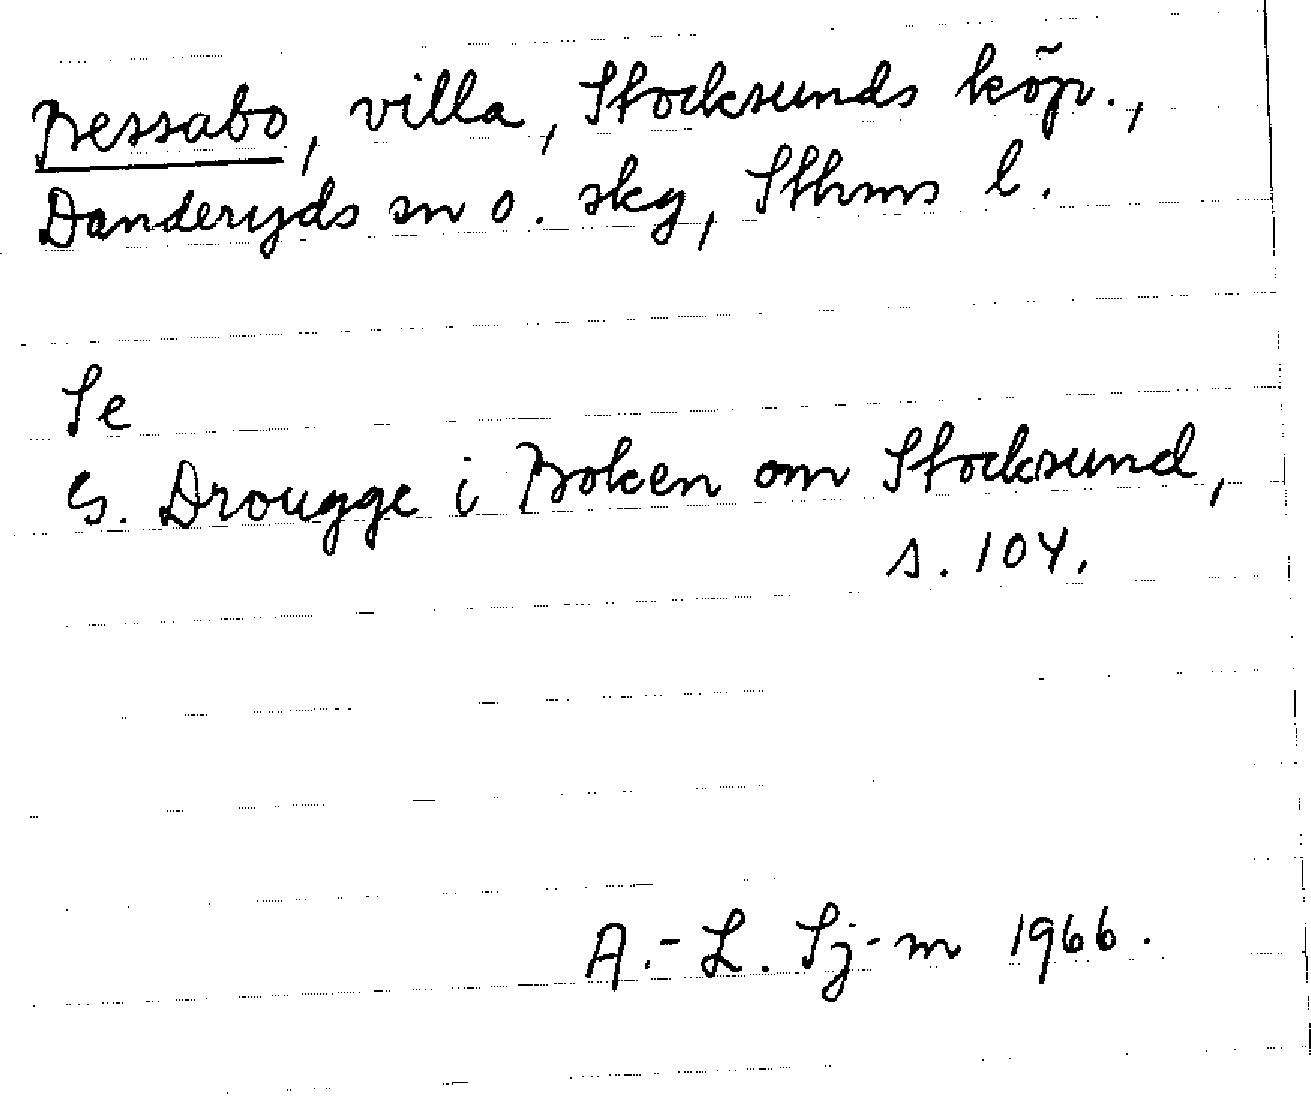 Bessabo, villa, Stocksunds köp.,
Danderyds sn o. skg, Sthms l.
Se
G. Drougge i Boken om Stocksund,
s. 104.
A.-L. Sj-m 1966.